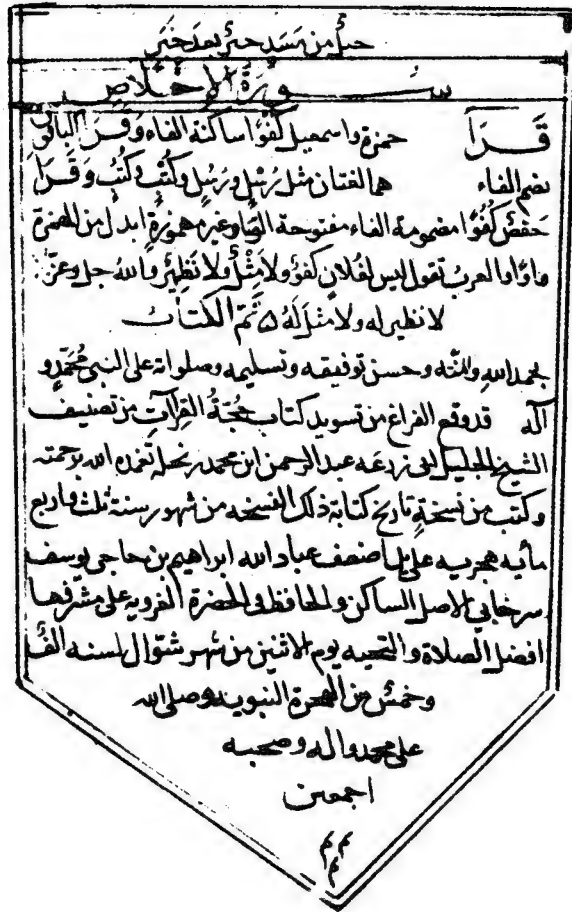 حبل من مسد خبر بعد خبر
سورة الاخلاص
قرأ حمزة واسمعيل كفؤا ساكنة الفاء وقرأ الباقون
بضم الفاء هما لغتان مثل رُسْل ورُسُل وكُتْب وكُتُب وقرأ
حفص كفوا مضمومة الفاء مفتوحة الواو غير مهموزة ابدل من الهمزة
واوا والعرب تقول ليس لفلان كفؤ ولا مثل ولا نظير والله جل وعز
لا نظير له ولا مثل له تم الكتاب
بحمد الله والمنه وحسن توفيقه وتسليمه وصلواته على النبي محمد و
آله قد وقع الفراغ من تسويد كتاب حجة القراآت من تصنيف
الشيخ الجليل ابى زرعه عبد الرحمن ابن محمد بن نجله تغمده الله برحمته
وكتب من نسخة تاريخ كتابة ذلك النسخه من شهور سنة ثلث واربع
مأيه هجريه على يد اضعف عباد الله ابراهيم بن حاجى يوسف
سرخابي الاصل الساكن والحافظ فى الحضرة الغرويه على مشرفها
افضل الصلاة والتحيه يوم الاثنين من شهر شوال لسنه الف
وخمس من الهجرة النبويه وصلى الله
على محمد واله وصحبه
اجمعين
م م م